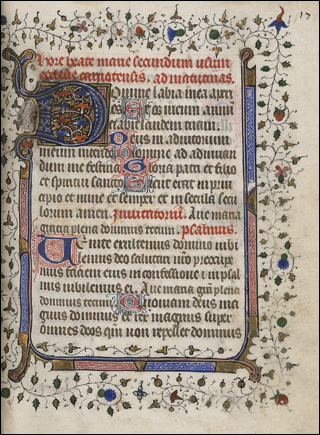 17
Hore beate marie secundum usum
ecclesie carnotensis. ad matutinas.
Domine labia mea aperi
Et os meum annũ
ciabit laudem tuam.
Deus in adiutorium
meum intende Domine ad adiuvan
dum me festina Gloria patri et filio
et spiritui sancto Sicut erat in prin
cipio et nunc et semper et in secula secu
lorum amen. Invitatoriũ. Ave maria
gracia plena dominus tecum. psalmus.
Venite exultemus domino iubi
lemus deo salutari nr̃o preoccupe
mus faciem eius in confessione et in psal
mis iubilemus ei. Ave maria grã plena
dominus tecum Quoniam deus ma
gnus dominus et rex magnus super
omnes deos qm̃ non repellet dominus